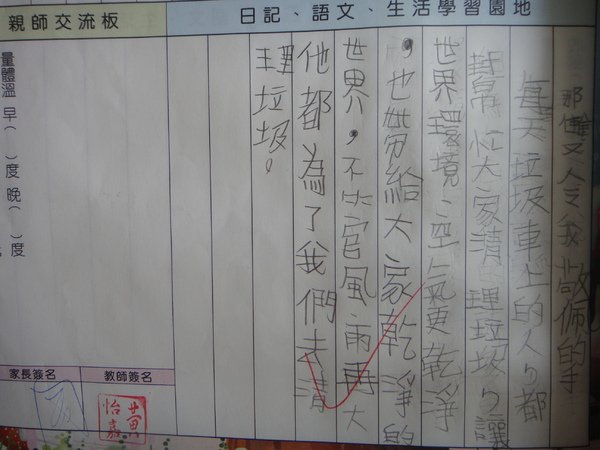 日記、語文、生活學習園地
那雙令我敬佩的手
每天垃圾車上的人,都
幫忙大家清理垃圾,讓
世界環境、空氣更乾淨
,也帶給大家乾淨的
世界,不管風雨再大
他都為了我們去清
理垃圾。
親師交流板
量體溫 早( )度 晚( )度
家長簽名
教師簽名
怡嘉